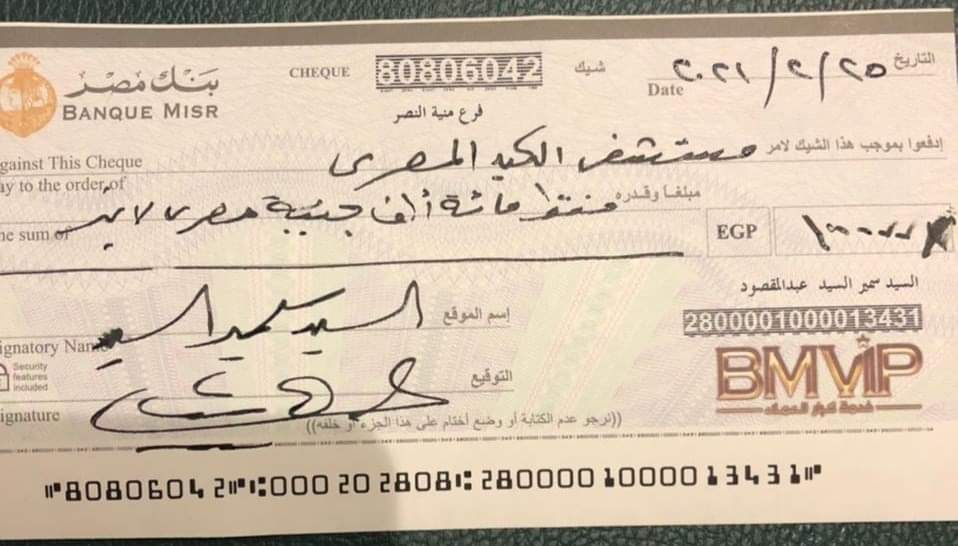 بنك مصر
BANQUE MISR
CHEQUE 80806042 شيك
التاريخ ٢٠٢١/٢/٢٥
Date
فرع منية النصر
إدفعوا بموجب هذا الشيك لامر مستشفى الكبد المصرى
gainst This Cheque
ay to the order of
مبلغا وقدره فقط مائة ألف جنيه مصرى لاغير
he sum of
EGP
السيد سمير السيد عبدالمقصود
28000001000013431
إسم الموقع السيد سمير السيد
ignatory Name
BMVIP
خدمة كبار العملاء
Security
features
included
التوقيع
ignature
((نرجو عدم الكتابة أو وضع أختام على هذا الجزء أو خلفه))
⑈80806042⑈⑆000 20 2808⑆ 280000 10000 13431⑈